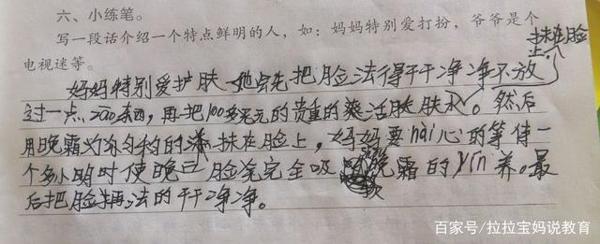 六、小练笔。
写一段话介绍一个特点鲜明的人，如：妈妈特别爱打扮，爷爷是个
电视迷等。
抹在脸
上。
妈妈特别爱护肤，她会先把脸洗得干干净净不放
过一点 东西，再把100多元的贵重的爽活肤水
然后
用晚霜 均匀的 抹在脸上，妈妈要nài心的等待一
个多小时 使晚 脸完全吸 晚霜的yín养。最
后把脸再洗的干干净净。
百家号/拉拉宝妈说教育